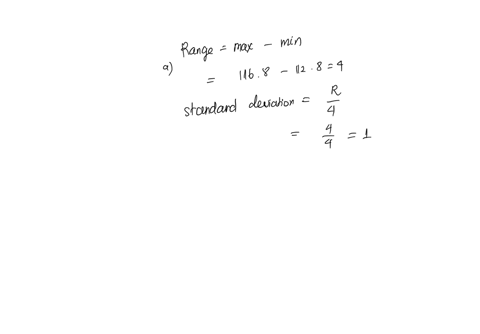 Range = max - min
a)
= 116.8 - 112.8 = 4
standard deviation = R/4
= 4/4 = 1